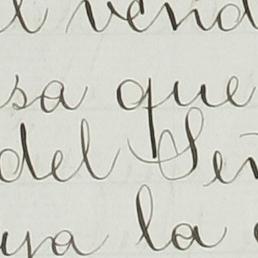 l vend
sa que
del Señ
uya la